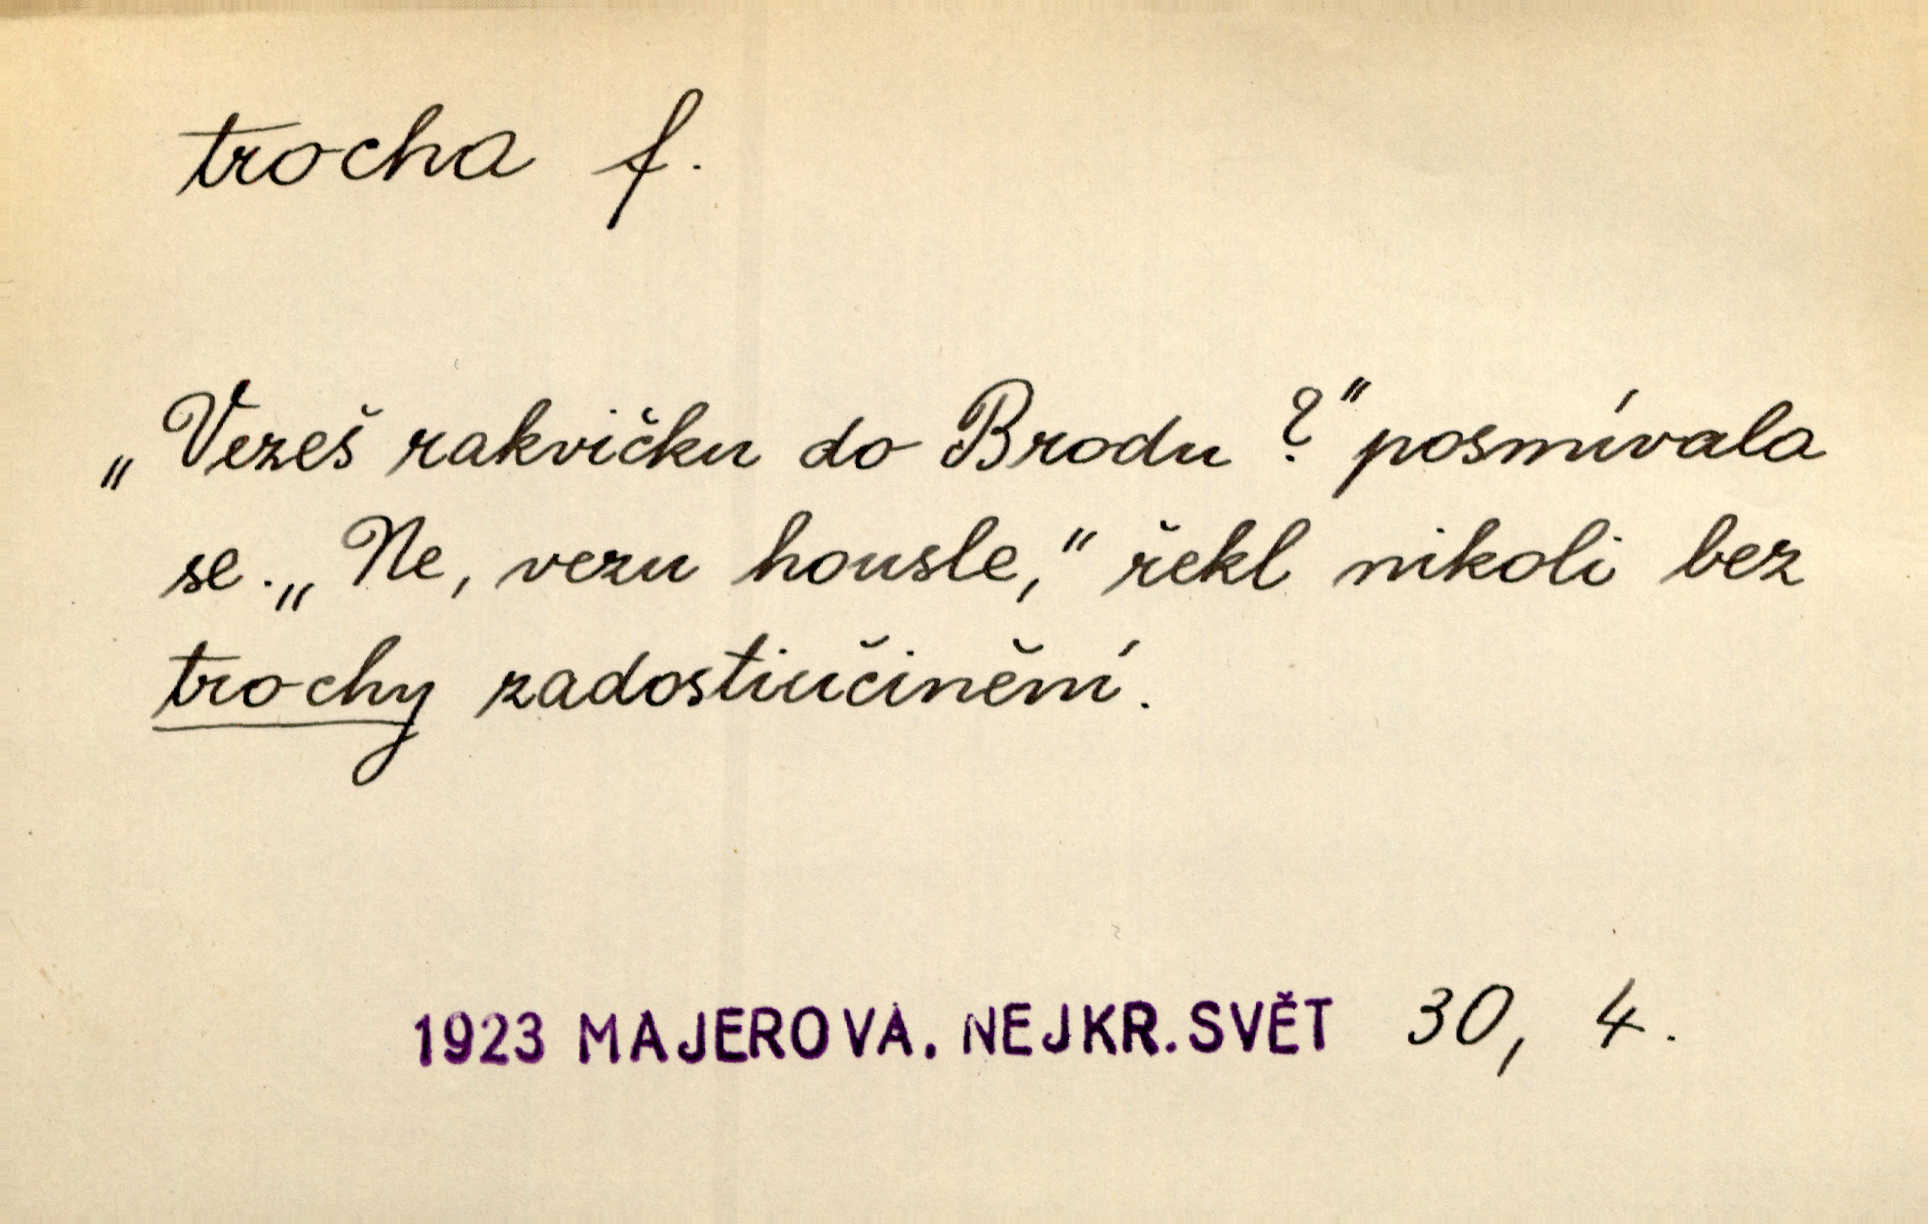 trocha f.
„Vezeš rakvičku do Brodu?" posmívala
se. „Ne, vezu housle," řekl nikoli bez
trochy zadostiučinění.
1923 MAJEROVÁ. NEJKR. SVĚT 30, 4.